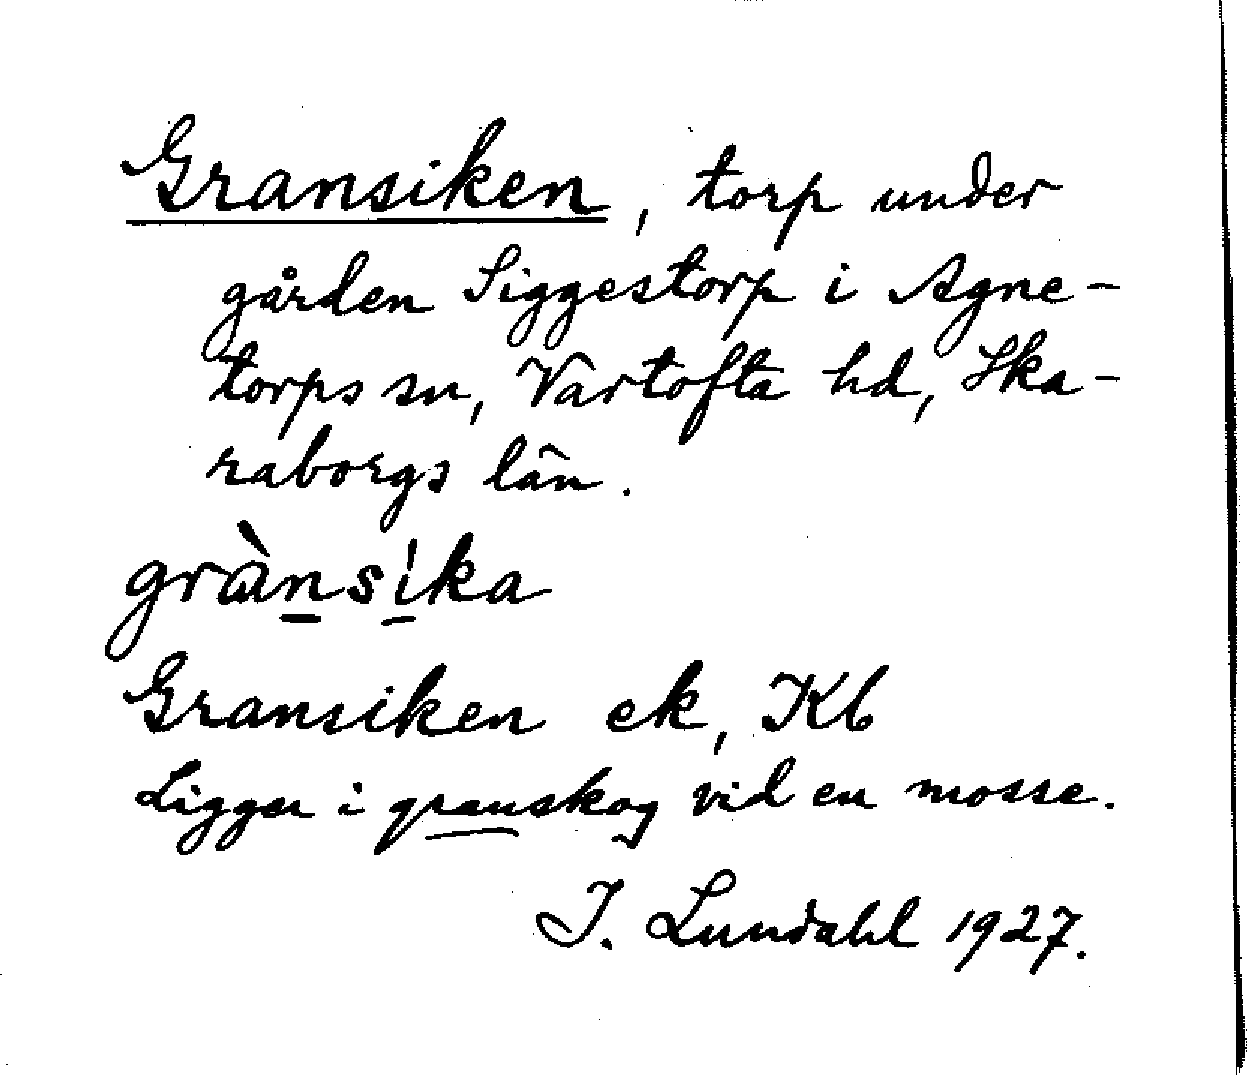 Gransiken, torp under
gården Siggestorp i Agne-
torps sn, Vartofta hd, Ska-
raborgs län.
grànsika
Gransiken ek, Kb
Ligger i granskog vid en mosse.
I. Lundahl 1927.